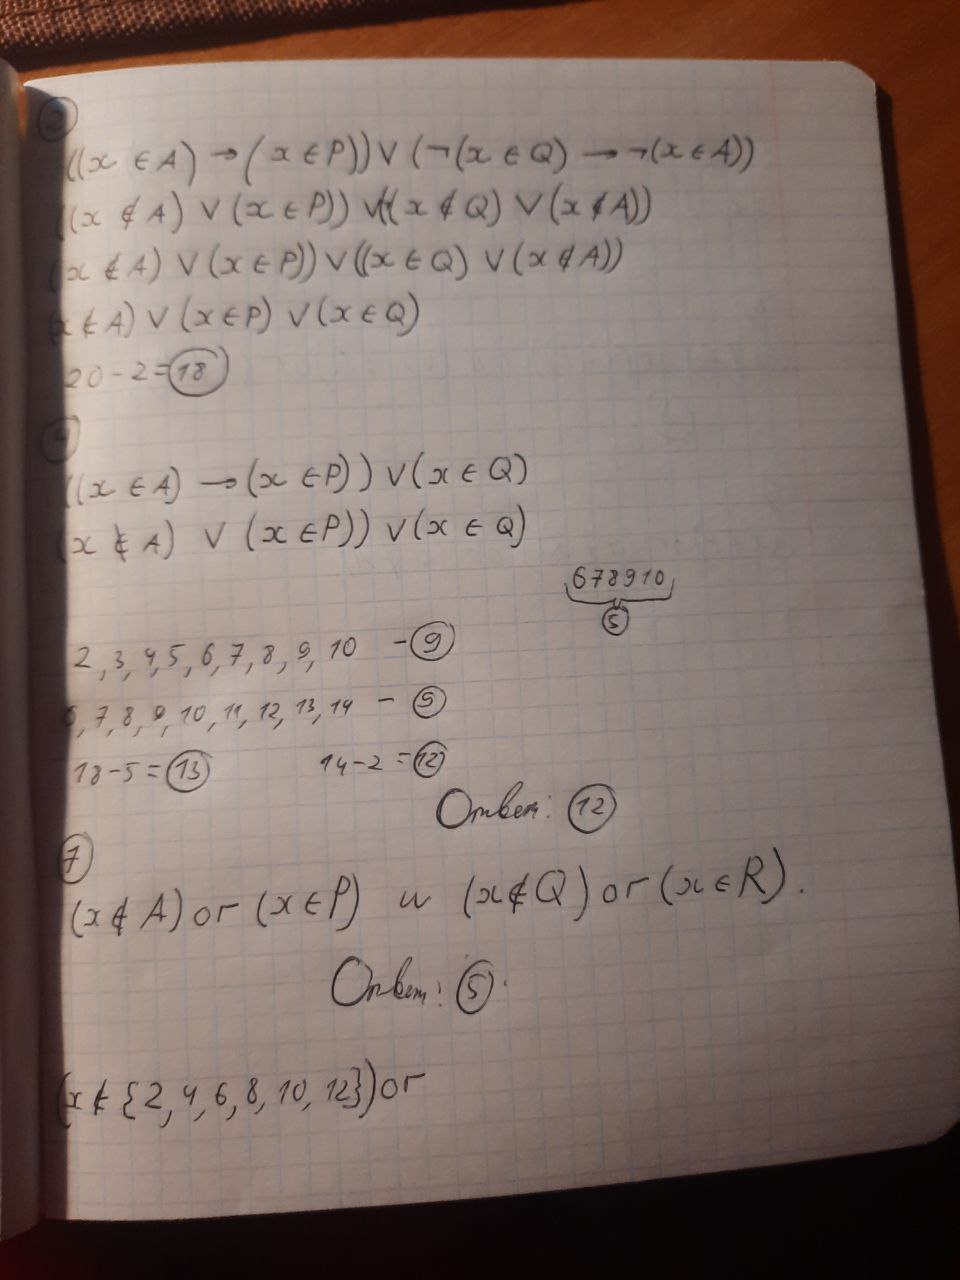 2
((x ∈ A) → (x ∈ P)) ∨ (¬(x ∈ Q) → ¬(x ∈ A))
((x ∉ A) ∨ (x ∈ P)) ∨ ((x ∉ Q) ∨ (x ∉ A))
(x ∉ A) ∨ (x ∈ P)) ∨ ((x ∈ Q) ∨ (x ∉ A))
(x ∉ A) ∨ (x ∈ P) ∨ (x ∈ Q)
20 - 2 = 18
((x ∈ A) → (x ∈ P)) ∨ (x ∈ Q)
(x ∉ A) ∨ (x ∈ P)) ∨ (x ∈ Q)
6 7 8 9 10
5
2, 3, 4, 5, 6, 7, 8, 9, 10 - 9
6, 7, 8, 9, 10, 11, 12, 13, 14 - 9
18 - 5 = 13 14 - 2 = 12
Ответ: 12
7
(x ∉ A) or (x ∈ P) и (x ∉ Q) or (x ∈ R).
Ответ: 5.
(x ∉ {2, 4, 6, 8, 10, 12}) or